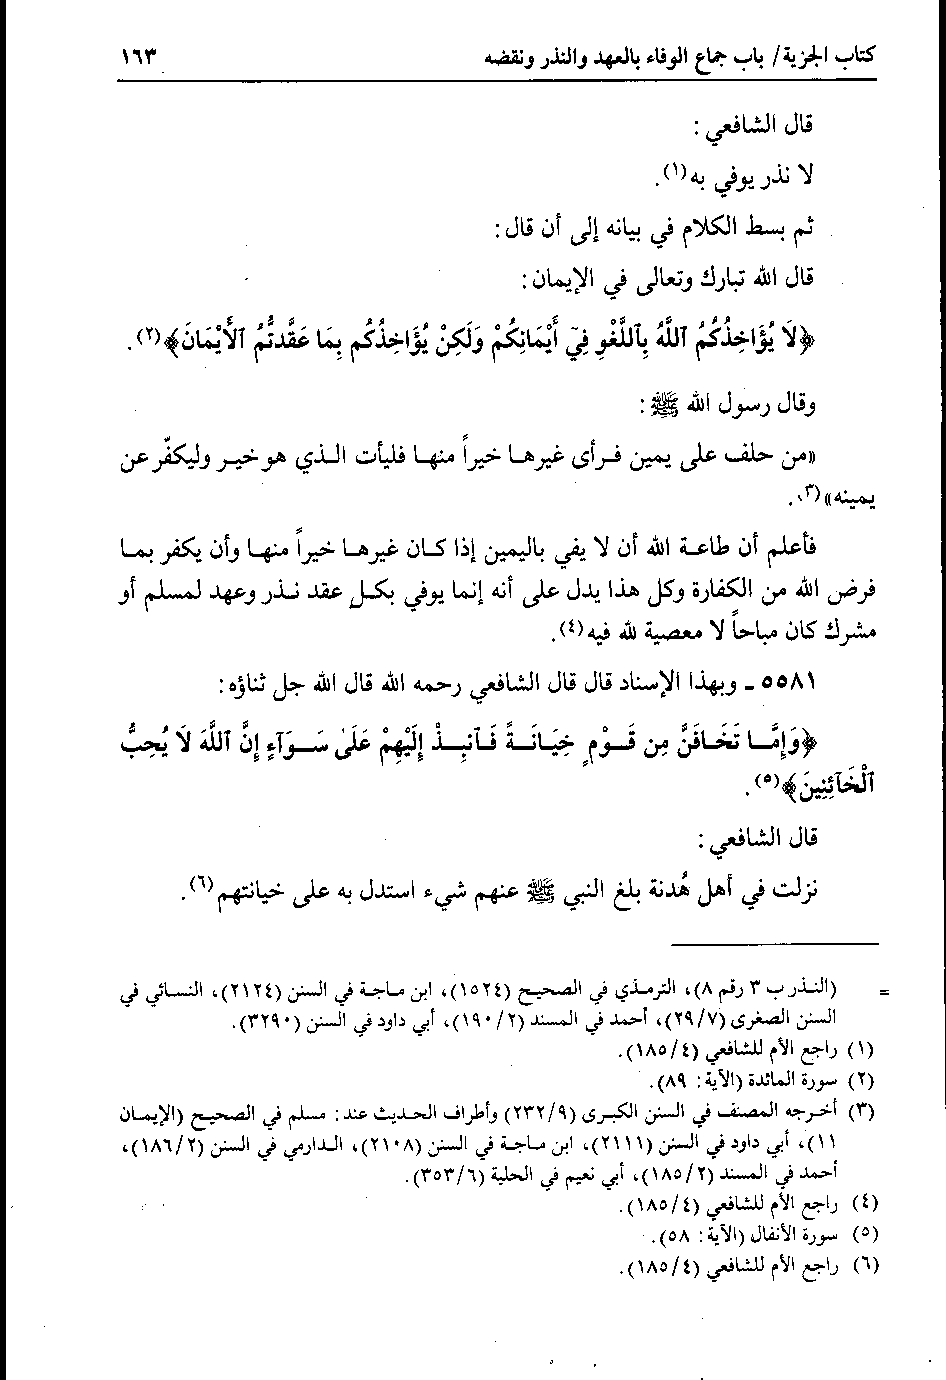 كتاب الجزية/ باب جماع الوفاء بالعهد والنذر ونقضه ١٦٣
قال الشافعي :
لا نذر يوفي به(١).
ثم بسط الكلام في بيانه إلى أن قال:
قال الله تبارك وتعالى في الإيمان:
﴿لَا يُؤَاخِذُكُمُ ٱللَّهُ بِٱللَّغْوِ فِيٓ أَيْمَانِكُمْ وَلَكِنْ يُؤَاخِذُكُم بِمَا عَقَّدتُّمُ ٱلْأَيْمَانَ﴾(٢).
وقال رسول الله ﷺ :
«من حلف على يمين فرأى غيرها خيراً منها فليأت الذي هو خير وليكفّر عن
يمينه»(٣).
فأعلم أن طاعة الله أن لا يفي باليمين إذا كان غيرها خيراً منها وأن يكفر بما
فرض الله من الكفارة وكل هذا يدل على أنه إنما يوفي بكل عقد نذر وعهد لمسلم أو
مشرك كان مباحاً لا معصية لله فيه(٤).
٥٥٨١ ـ وبهذا الإسناد قال قال الشافعي رحمه الله قال الله جل ثناؤه:
﴿وَإِمَّا تَخَافَنَّ مِن قَوْمٍ خِيَانَةً فَٱنبِذْ إِلَيْهِمْ عَلَىٰ سَوَآءٍ إِنَّ ٱللَّهَ لَا يُحِبُّ
ٱلْخَآئِنِينَ﴾(٥).
قال الشافعي :
نزلت في أهل هُدنة بلغ النبي ﷺ عنهم شيء استدل به على خيانتهم(٦).
= (النذر ب ٣ رقم ٨)، الترمذي في الصحيح (١٥٢٤)، ابن ماجة في السنن (٢١٢٤)، النسائي في
السنن الصغرى (٢٩/٧)، أحمد في المسند (١٩٠/٢)، أبي داود في السنن (٣٢٩٠).
(١) راجع الأم للشافعي (١٨٥/٤).
(٢) سورة المائدة (الآية: ٨٩).
(٣) أخرجه المصنف في السنن الكبرى (٢٣٢/٩) وأطراف الحديث عند: مسلم في الصحيح (الإيمان
١١)، أبي داود في السنن (٢١١١)، ابن ماجة في السنن (٢١٠٨)، الدارمي في السنن (١٨٦/٢)،
أحمد في المسند (١٨٥/٢)، أبي نعيم في الحلية (٣٥٣/٦).
(٤) راجع الأم للشافعي (١٨٥/٤).
(٥) سورة الأنفال (الآية: ٥٨).
(٦) راجع الأم للشافعي (١٨٥/٤).